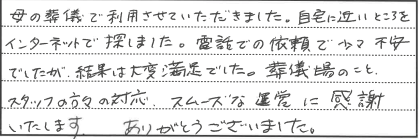 母の葬儀で利用させていただきました。自宅に近いところを
インターネットで探しました。電話での依頼で少々不安
でしたが、結果は大変満足でした。葬儀場のこと、
スタッフの方々の対応、スムーズな運営に感謝
いたします。ありがとうございました。